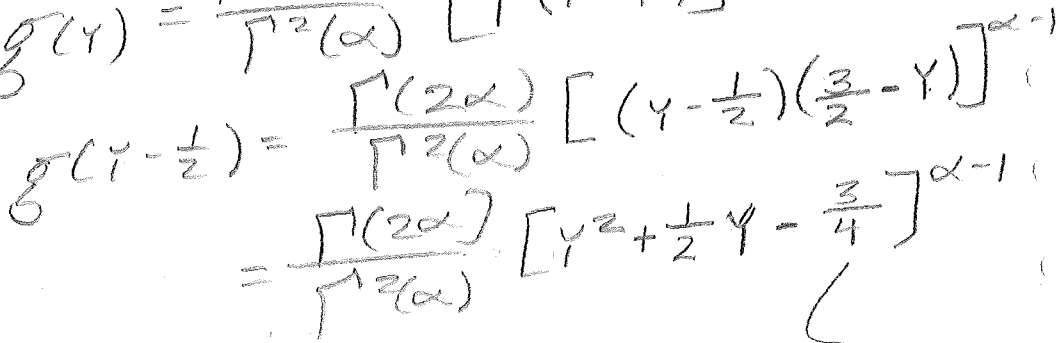 g(Y) = / Γ²(α) [
g(Y - 1/2) = Γ(2α) / Γ²(α) [(Y - 1/2)(3/2 - Y)]^α-1
= Γ(2α] / Γ²(α) [Y² + 1/2 Y - 3/4]^α-1